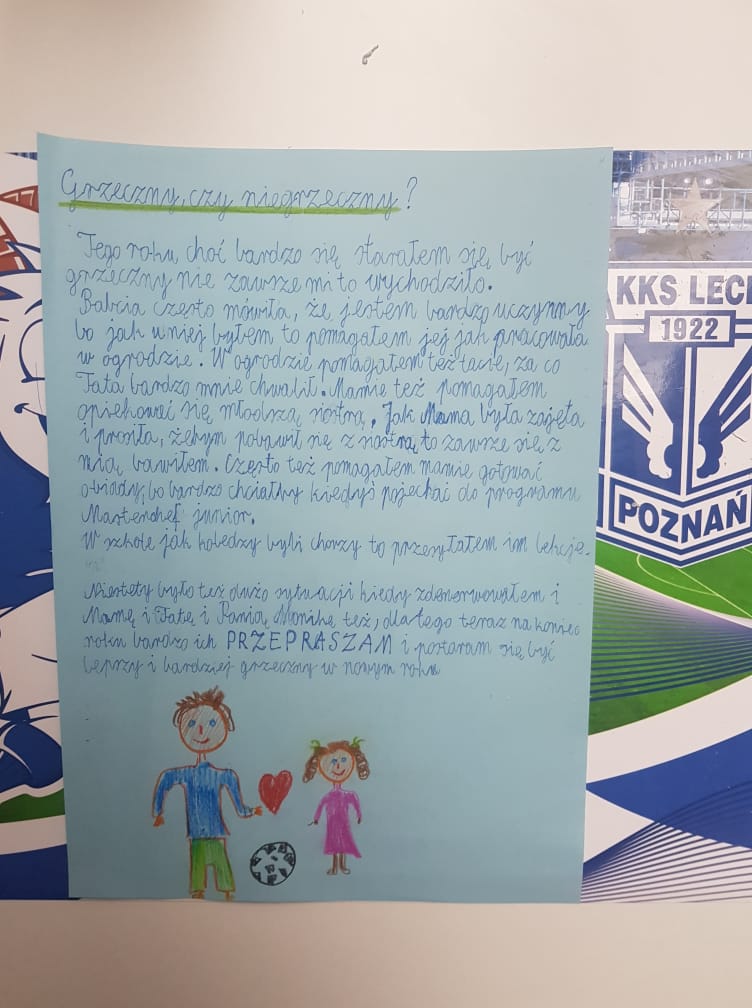 Grzeczny, czy niegrzeczny?
Tego roku, choć bardzo się starałem się być
grzeczny nie zawsze mi to wychodziło.
Babcia często mówiła, że jestem bardzo uczynny
bo jak u niej byłem to pomagałem jej jak pracowała
w ogrodzie. W ogrodzie pomagałem też tacie, za co
Tata bardzo mnie chwalił. Mamie też pomagałem
opiekować się młodszą siostrą. Jak Mama była zajęta
i prosiła, żebym pobawił się z siostrą to zawsze się z
nią bawiłem. Często też pomagałem mamie gotować
obiady, bo bardzo chciałby kiedyś pojechać do programu
Masterchef junior.
W szkole jak koledzy byli chorzy to przesyłałem im lekcje.
Niestety było też dużo sytuacji kiedy zdenerwowałem i
Mamę i Tatę i Panią Monikę też, dlatego teraz na koniec
roku bardzo ich PRZEPRASZAM i postaram się być
lepszy i bardziej grzeczny w nowym roku
KKS LECH
1922
POZNAŃ